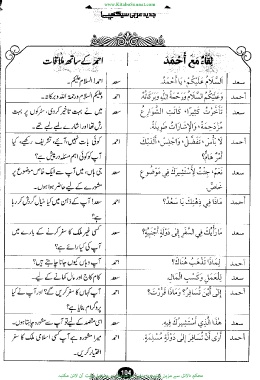 www.KitaboSunnat.com
جدید عربی سیکھیے
لِقَاءٌ مَعَ أَحْمَدَ
احمد کے ساتھ ملاقات
سعد
اَلسَّلَامُ عَلَيْكُمْ، يَا أَحْمَدُ.
سعد
احمد! السلام علیکم۔
أحمد
وَعَلَيْكُمُ السَّلَامُ وَرَحْمَةُ اللهِ وَبَرَكَاتُهُ.
احمد
وعلیکم السلام ورحمۃ اللہ وبرکاتہ۔
سعد
تَأَخَّرْتُ كَثِيرًا، كَانَتِ الشَّوَارِعُ
مُزْدَحِمَةً، وَالْإِشَارَاتُ طَوِيلَةً.
سعد
میں نے بہت تاخیر کر دی، سڑکوں پر بہت
رش تھا اور اشارے لمبے لمبے تھے۔
أحمد
لَا بَأْسَ، تَفَضَّلْ، وَاجْلِسْ، أَلَدَيْكَ
أَمْرٌ هَامٌّ؟
احمد
کوئی بات نہیں، آیئے، تشریف رکھیے، کیا
آپ کو کوئی اہم مسئلہ درپیش ہے؟
سعد
نَعَمْ، جِئْتُ لِأَسْتَشِيرَكَ فِي مَوْضُوعٍ
خَاصٍّ.
سعد
جی ہاں، میں آپ سے ایک خاص موضوع پر
مشورے کے لیے حاضر ہوا ہوں۔
أحمد
مَاذَا فِي ذِهْنِكَ يَا سَعْدُ؟
احمد
سعد! آپ کے ذہن میں کیا خیال گردش کر رہا
ہے؟
سعد
مَا رَأْيُكَ فِي السَّفَرِ إِلَى دَوْلَةٍ أَجْنَبِيَّةٍ؟
سعد
کسی غیر ملک کا سفر کرنے کے بارے میں
آپ کی کیا رائے ہے؟
أحمد
لِمَاذَا تَذْهَبُ هُنَاكَ؟
احمد
آپ وہاں کیوں جانا چاہتے ہیں؟
سعد
لِلْعَمَلِ وَكَسْبِ الْمَالِ.
سعد
کام کاج اور مال کمانے کے لیے۔
أحمد
إِلَى أَيْنَ تُسَافِرُ؟ وَمَاذَا قَرَّرْتَ؟
احمد
آپ کہاں کا سفر کریں گے؟ اور آپ نے کیا
پروگرام بنایا ہے؟
سعد
هَذَا الَّذِي أَسْتَشِيرُكَ فِيهِ.
سعد
اسی مقصد کے لیے تو آپ سے مشورہ چاہتا ہوں۔
أحمد
أَرَى أَنْ تُسَافِرَ إِلَى دَوْلَةٍ مُسْلِمَةٍ.
احمد
میرا مشورہ ہے آپ کسی اسلامی ملک کا سفر
اختیار کریں۔
104